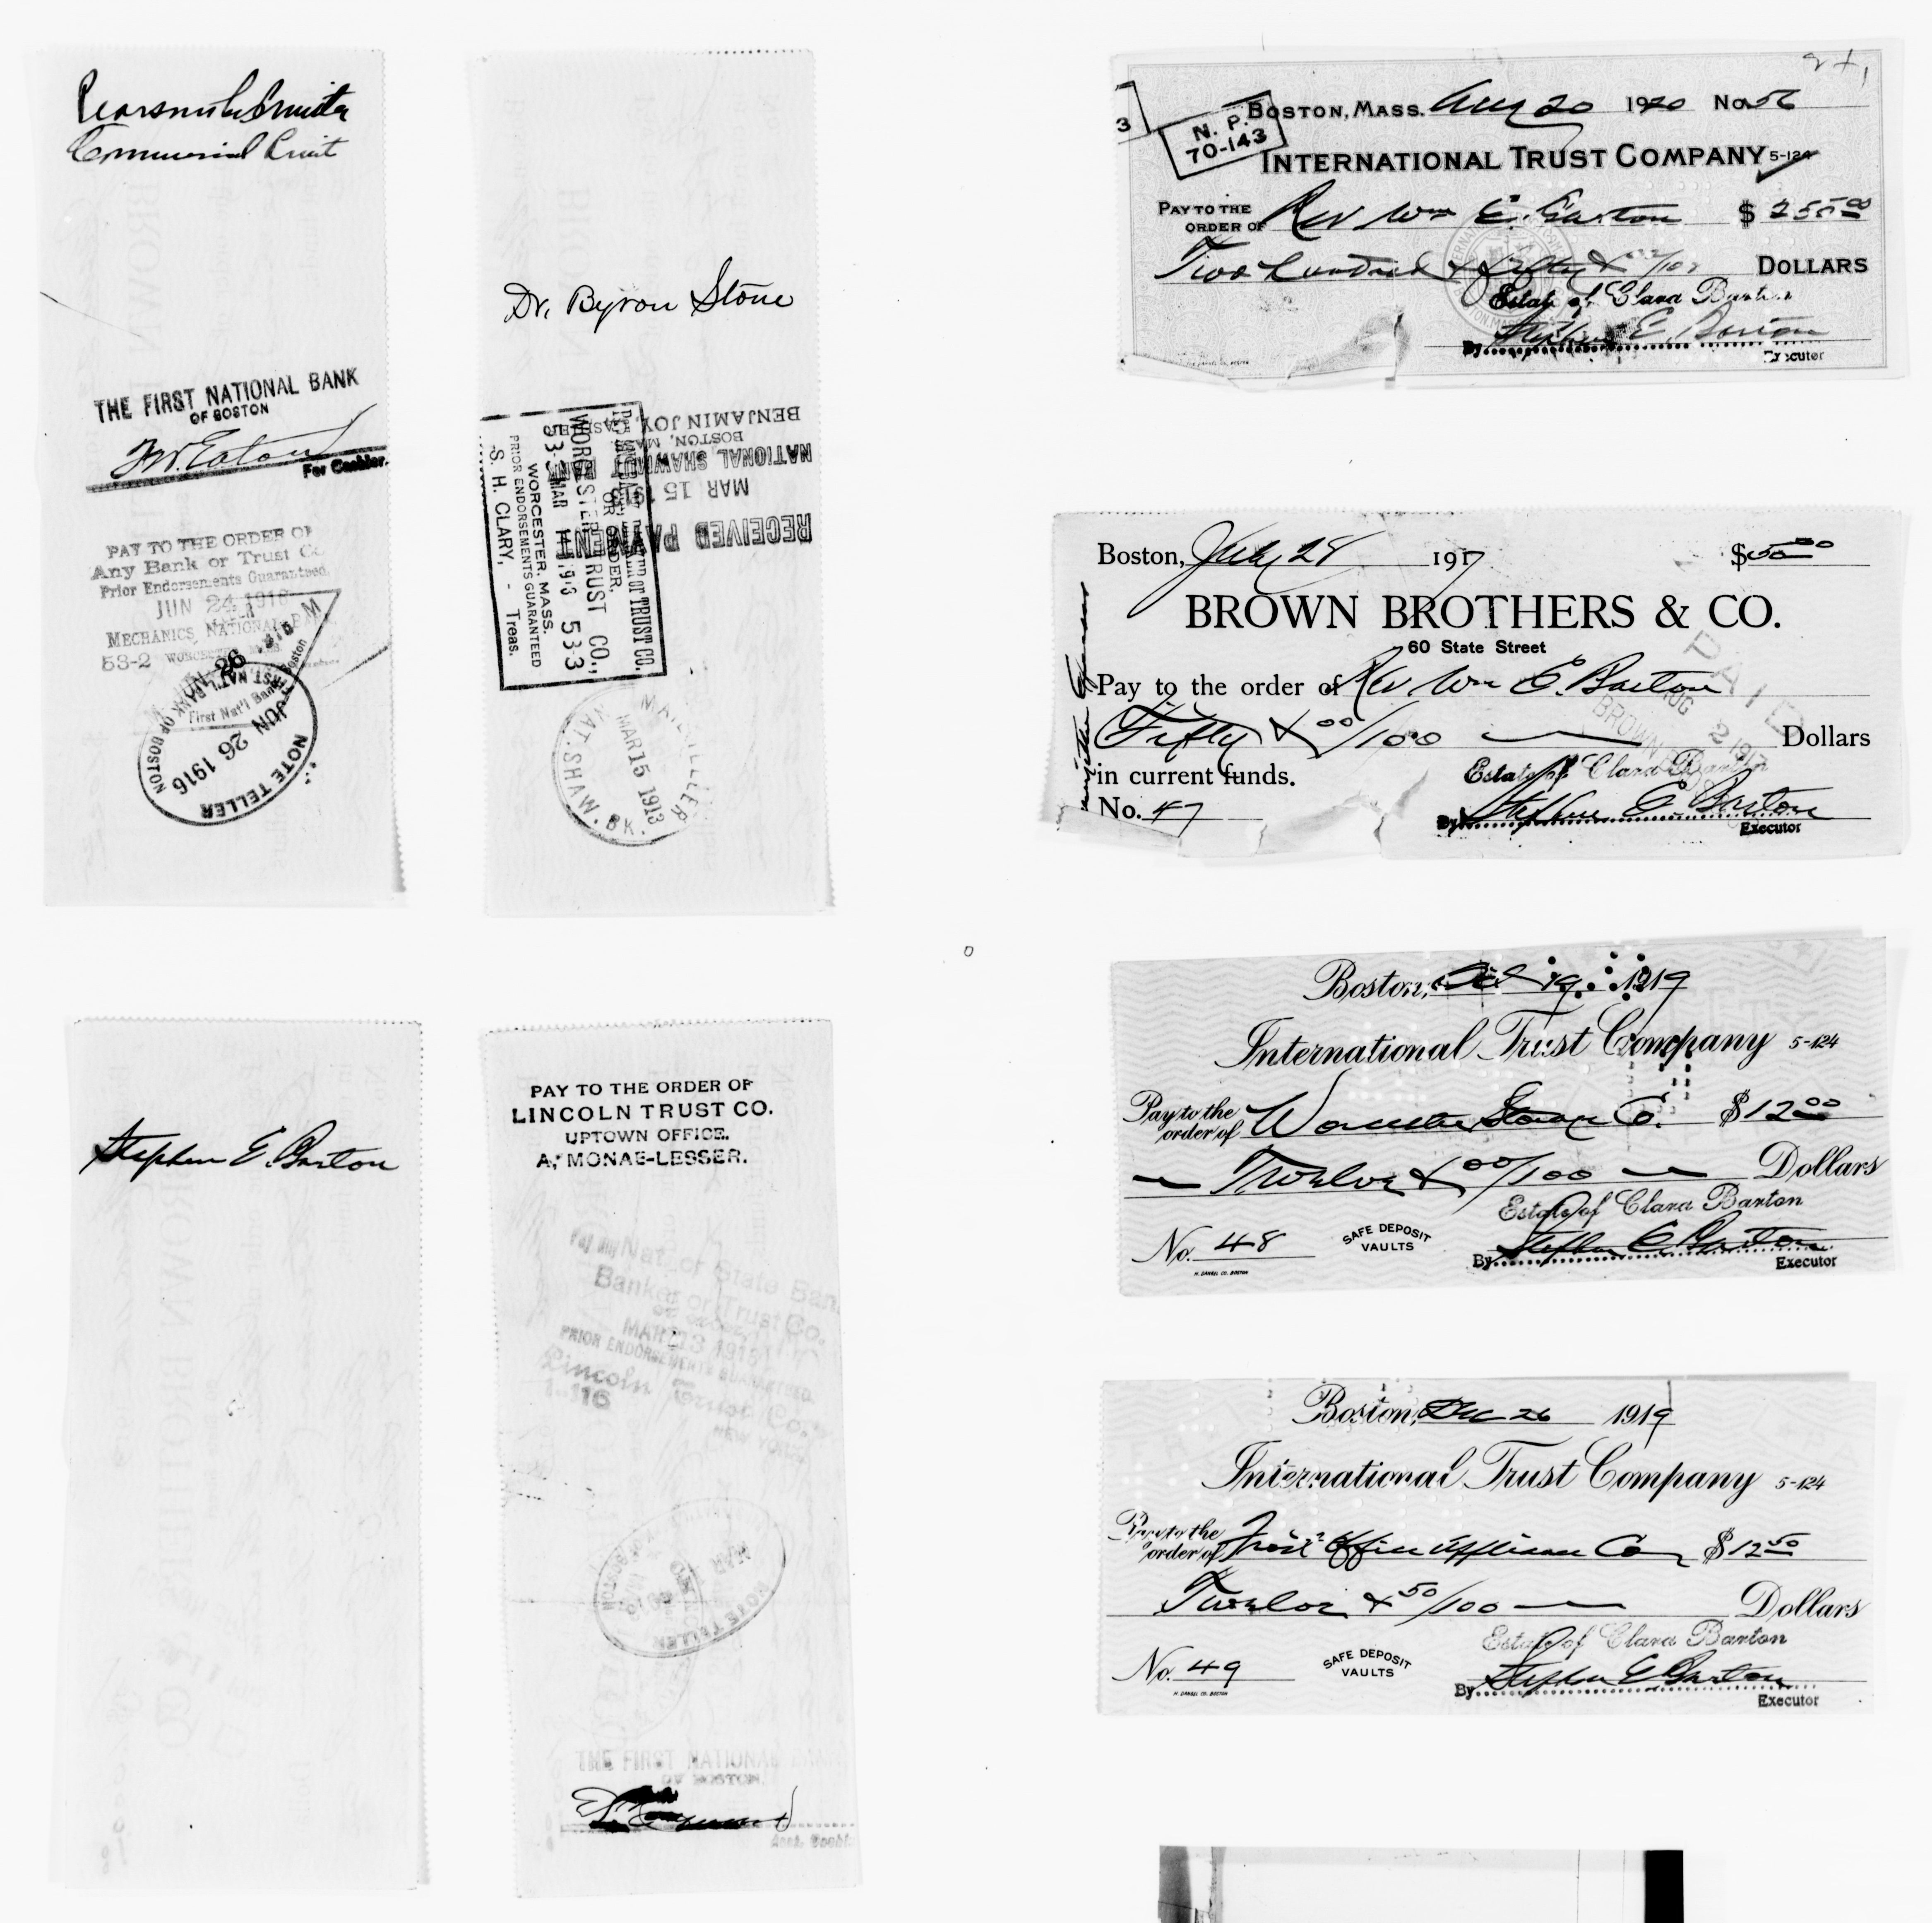 Commercial Trust
THE FIRST NATIONAL BANK
OF BOSTON
For Cashier.
PAY TO THE ORDER OF
Any Bank or Trust Co.
Prior Endorsements Guaranteed.
JUN 24 1916
MECHANICS NATIONAL BANK,
53-2 WORCESTER
First Nat'l Bank Boston
JUN 26 1916
NOTE TELLER
Dr. Byron Stone
OR ORDER.
WORCESTER TRUST CO.,
53-3 MAR 14 1913 53-3
WORCESTER, MASS.
PRIOR ENDORSEMENTS GUARANTEED
S. H. CLARY, - Treas.
RECEIVED PAYMENT
MAR 15 1913
NATIONAL SHAWMUT BANK
BOSTON, MASS.
BENJAMIN JOY, CASHIER
MAIL TELLER
MAR 15 1913
NAT. SHAW. BK.
Stephen E. Barton
PAY TO THE ORDER OF
LINCOLN TRUST CO.
UPTOWN OFFICE.
A. MONAE-LESSER.
Pay any Nat. or State Bank
Banker or Trust Co.
or order
PRIOR ENDORSEMENTS GUARANTEED
Lincoln Trust Co.
NEW YORK
NOTE TELLER
THE FIRST NATIONAL BANK
OF BOSTON.
Asst. Cashier
N. P.
70-143
3
BOSTON, MASS. Aug 20 1920 No 56
INTERNATIONAL TRUST COMPANY 5-124
PAY TO THE
ORDER OF Rev Wm E. Barton $ 250 00
Two hundred & fifty & 00/100 DOLLARS
Estate of Clara Barton
By Stephen E. Barton
Executor
Boston, July 28 1917 $50 00
BROWN BROTHERS & CO.
60 State Street
Pay to the order of Rev Wm E. Barton
Fifty & 00/100 Dollars
in current funds.
PAID
AUG 2 1917
BROWN BROTHERS
Estate of Clara Barton
No. 47
By Stephen E. Barton
Executor
Boston, Oct 19 1919
International Trust Company 5-124
Pay to the
order of Worcester Storage Co. $12 00
Twelve & 00/100 Dollars
Estate of Clara Barton
No. 48 SAFE DEPOSIT
VAULTS
By Stephen E. Barton
Executor
Boston, Dec 26 1919
International Trust Company 5-124
Pay to the
order of Co $12 50
Twelve & 50/100 Dollars
Estate of Clara Barton
No. 49 SAFE DEPOSIT
VAULTS
By Stephen E Barton
Executor